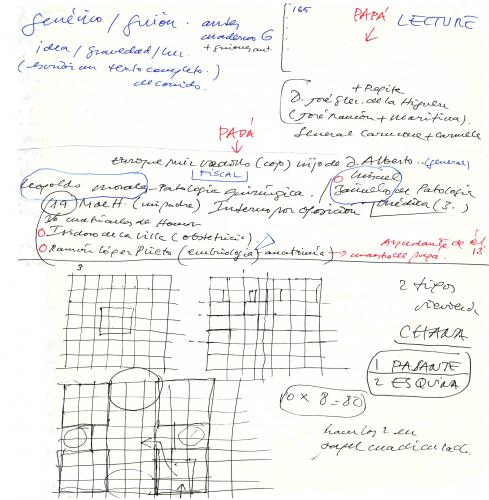 genérico / guión. antes
cuadernos G
+ guiones ant
idea / gravedad / luz.
(escribir un texto completo.)
de corrido.
165
PAPÁ
LECTURE
+ Pepita
D. José Glez. de la Higuera
(José Ramón + Maritina).
General Carmona + Carmela
PAPÁ
Enrique Ruiz (cojo) hijo de D. Alberto.. (general)
FISCAL
Leopoldo Morales - Patología quirúrgica. / Miguel
de Patología
médica (3.)
(19) Mat H (mi padre) Interno por oposición
16 matrículas de Honor
Isidoro de la Villa (obstetricia)
Ramón López Prieto (embriología - anatomía) → maestro de papá.
Ayudante de él
13
3
2 tipos
CHARA
1 PASANTE
2 ESQUINA
10 x 8 = 80
hacer los 2 en
papel cuadriculado.